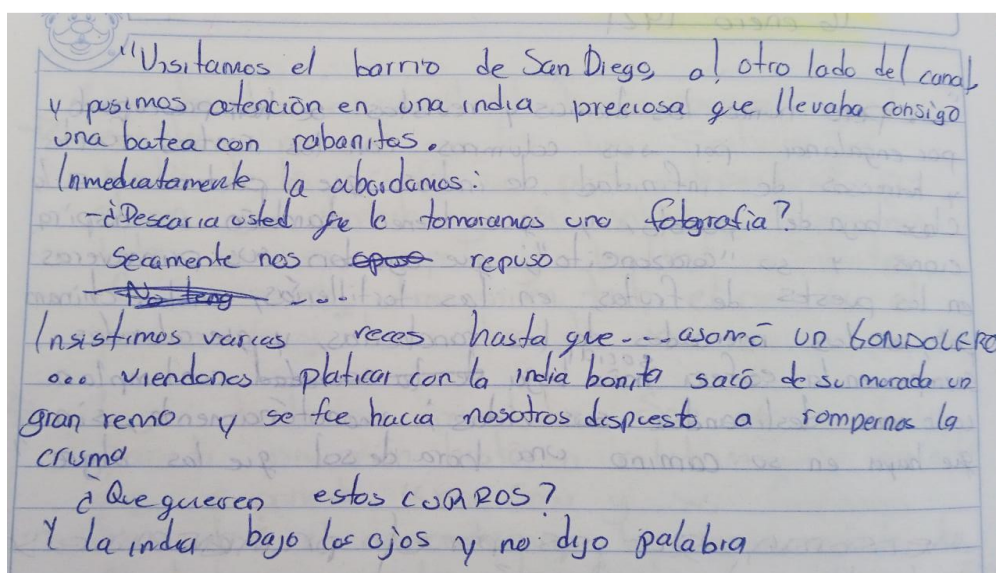 "Visitamos el barrio de San Diego, al otro lado del canal,
y pusimos atención en una india preciosa que llevaba consigo
una batea con rabanitos.
Inmediatamente la abordamos:
-¿Desearia usted que le tomaramos una fotografia?
Secamente nos repuso
No teng ....
Insistimos varias veces hasta que ... asomó un GONDOLERO
... viendonos platicar con la india bonita sacó de su morada un
gran remo y se fue hacia nosotros dispuesto a rompernos la
crisma
¿Que quieren estos CURROS?
Y la india bajo los ojos y no dijo palabra